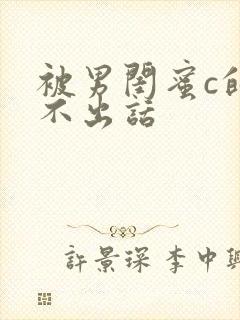 被男閨蜜c的
不出話
許景琛 李中興